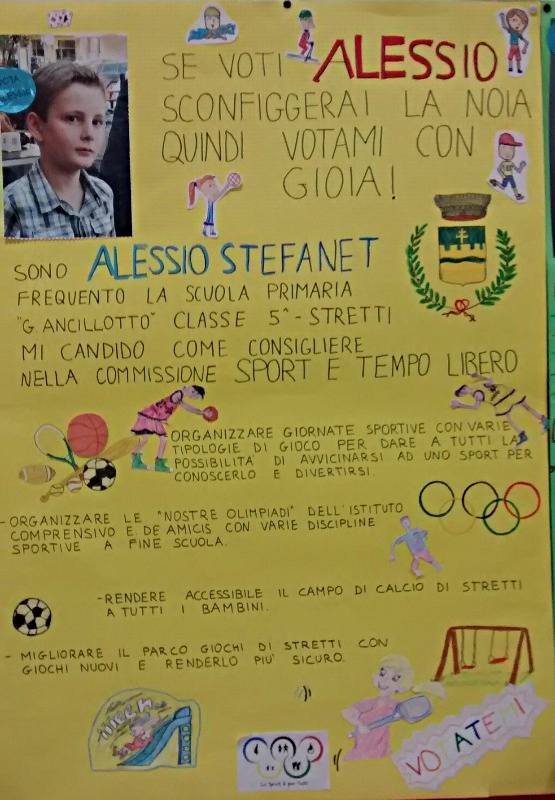 VOTA
SE VOTI ALESSIO
SCONFIGGERAI LA NOIA
QUINDI VOTAMI CON
GIOIA!
SONO ALESSIO STEFANET
FREQUENTO LA SCUOLA PRIMARIA
"G. ANCILLOTTO" CLASSE 5^-STRETTI
MI CANDIDO COME CONSIGLIERE
NELLA COMMISSIONE SPORT E TEMPO LIBERO
ORGANIZZARE GIORNATE SPORTIVE CON VARIE
TIPOLOGIE DI GIOCO PER DARE A TUTTI LA
POSSIBILITA' DI AVVICINARSI AD UNO SPORT PER
CONOSCERLO E DIVERTIRSI.
-ORGANIZZARE LE "NOSTRE OLIMPIADI" DELL'ISTITUTO
COMPRENSIVO E DE AMICIS CON VARIE DISCIPLINE
SPORTIVE A FINE SCUOLA.
-RENDERE ACCESSIBILE IL CAMPO DI CALCIO DI STRETTI
A TUTTI I BAMBINI.
- MIGLIORARE IL PARCO GIOCHI DI STRETTI CON
GIOCHI NUOVI E RENDERLO PIU' SICURO.
VOTATEMI
Lo Sport è per Tutti